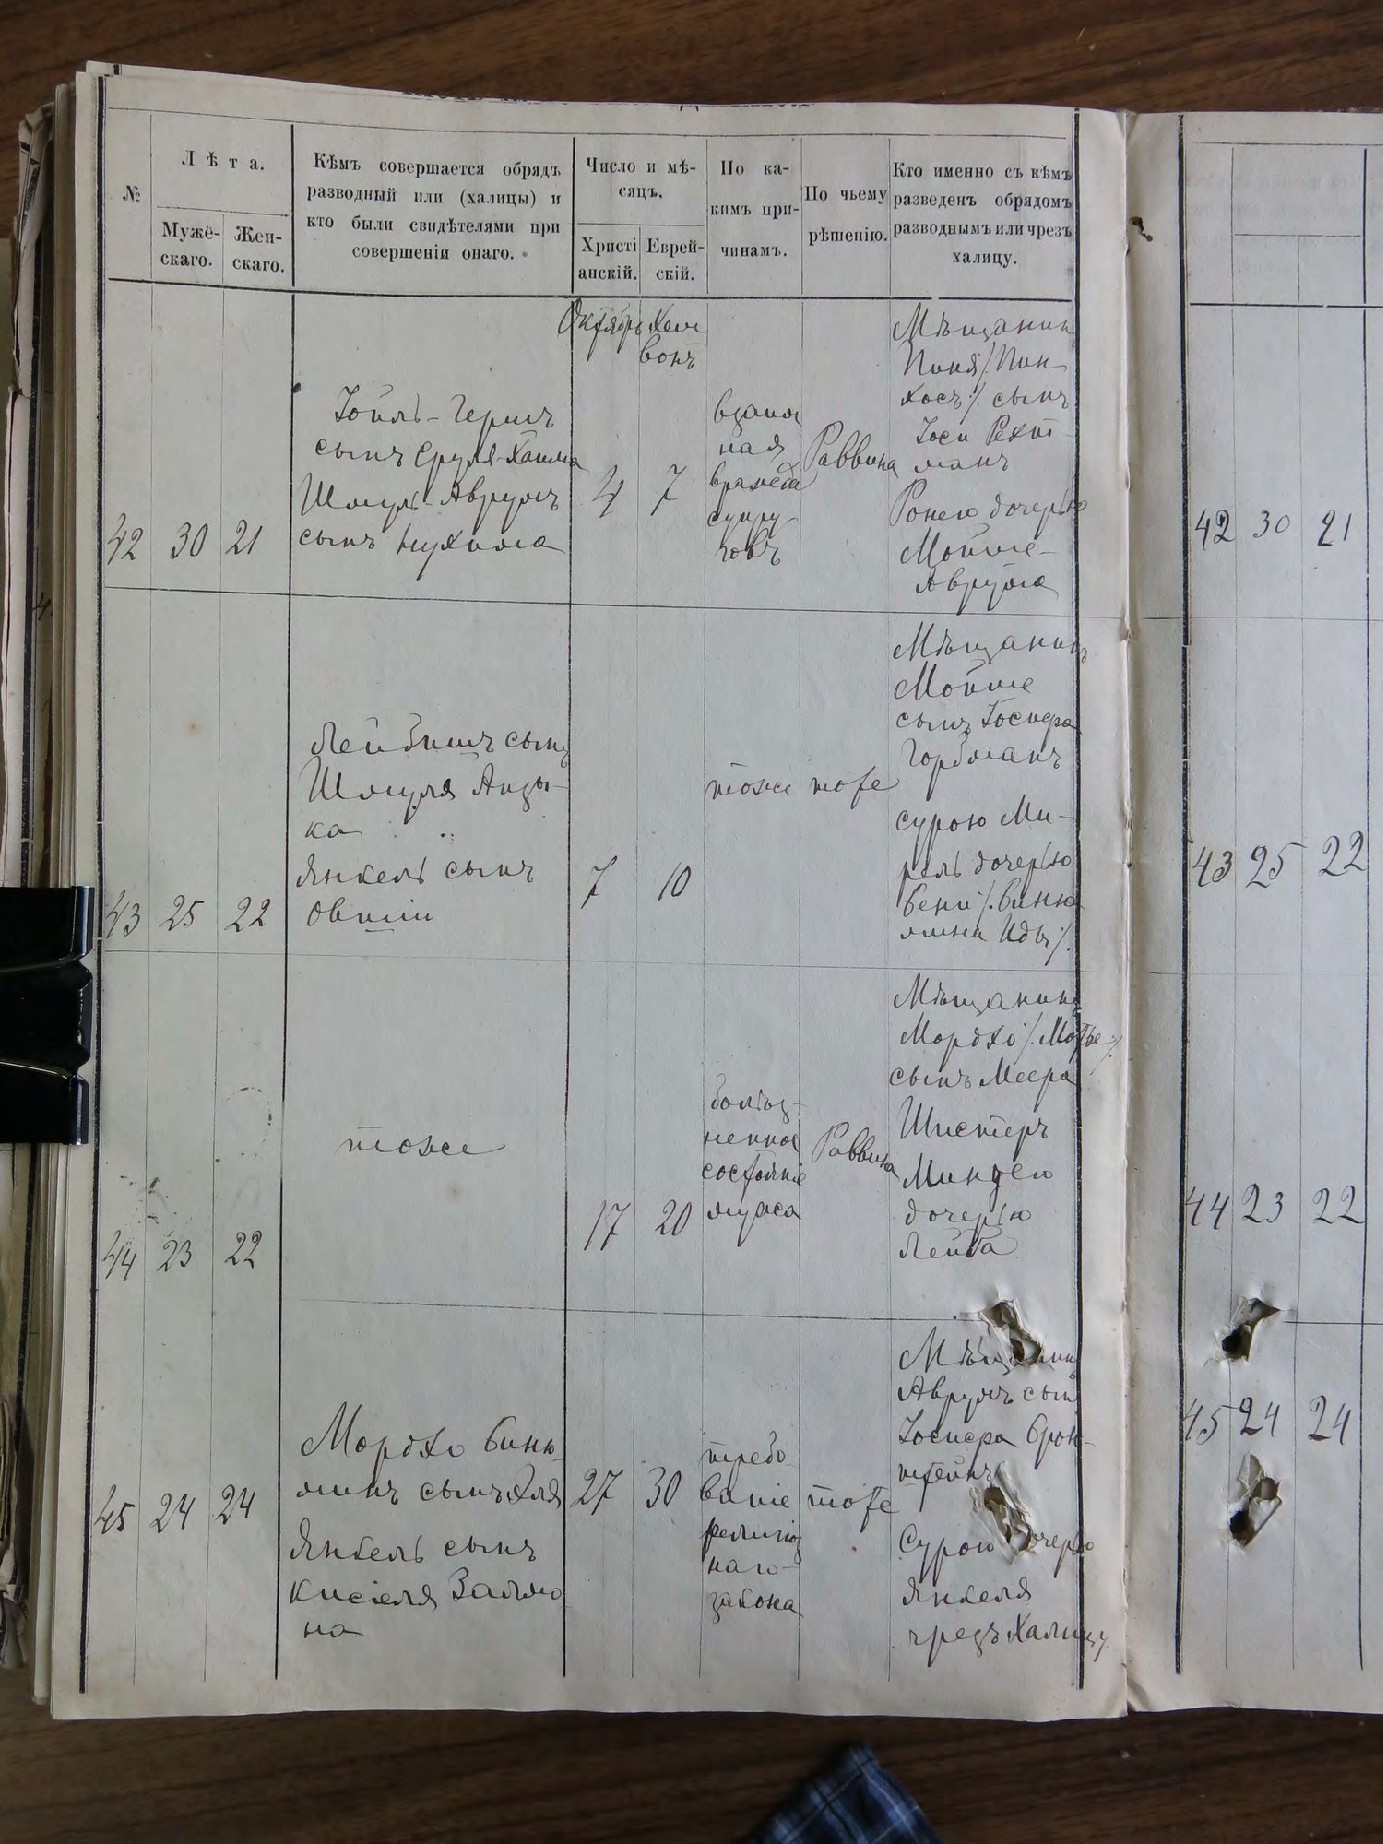 №
Лѣта.
Мужескаго.
Женскаго.
Кѣмъ совершается обрядъ
разводный или (халицы) и
кто были свидѣтелями при
совершеніи онаго.
Число и мѣ-
сяцъ.
Христі
анскій.
Еврей-
скій.
По ка-
кимъ при-
чинамъ.
По чьему
рѣшенію.
Кто именно съ кѣмъ
разведенъ обрядомъ
разводнымъ или чрезъ
халицу.
42
30
21
Іойль-Гершъ
сынъ Сруля-Хаима
Шмуль-Аврумъ
сынъ Нухима
Октябрь
4
Хеш
вонъ
7
взаим
ная
вражда
супру-
говъ
Раввина
Мѣщанинъ
Пиня /:Пин-
хосъ:/ сынъ
Іоси Рехт-
манъ
Ронею дочерью
Мойше-
Аврума
43
25
22
Лейбишъ сынъ
Шмуля
Янкель сынъ
Овшіи
7
10
тоже
тоже
Мѣщанинъ
Мойше
сынъ Іосифа
Горбманъ
Сурою Ми-
рель дочерью
Бени /:Биня
мина Иды:/
44
23
22
тоже
17
20
болѣз-
ненное
состояніе
мужа
Раввина
Мѣщанинъ
Мордко /:Мотье:/
сынъ Меера
Шистеръ
Миндею
дочерью
Лейба
45
24
24
Мордко Биню
минъ сынъ Эля
Янкель сынъ
Киселя Зальмо
на
27
30
требо
ваніе
религіоз
наго
закона
тоже
Мѣщанинъ
Аврумъ сынъ
Іосифа Брон-
штейнъ
Сурою дочерью
Янкеля
чрезъ Халицу
42 30 21
43 25 22
44 23 22
45 24 24